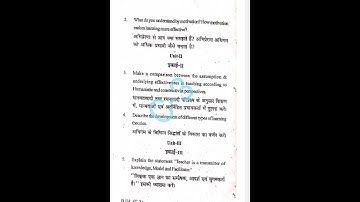 2. What do you understand by motivation? How motivation
makes learning more effective?
अभिप्रेरणा से आप क्या समझते हैं? अभिप्रेरणा अधिगम
को अधिक प्रभावी कैसे बनाता है?
Unit-II
इकाई-II
3. Make a comparison between the assumption &
underlying effectiveness in teaching according to
Humanistic and constructivist perspectives.
मानवतावादी तथा रचनावादी परिप्रेक्ष्य के अनुसार शिक्षण
में
4. Describe the development of different types of learning
theories.
अधिगम के विभिन्न सिद्धांतों के विकास का वर्णन करें
Unit-III
इकाई-III
5. Explain the statement "Teacher is a transmitter of
knowledge, Model and Facilitator."
"शिक्षक एक ज्ञान का सम्प्रेषक, आदर्श एवं सुगमकर्ता
है।" इसकी व्याख्या करें।